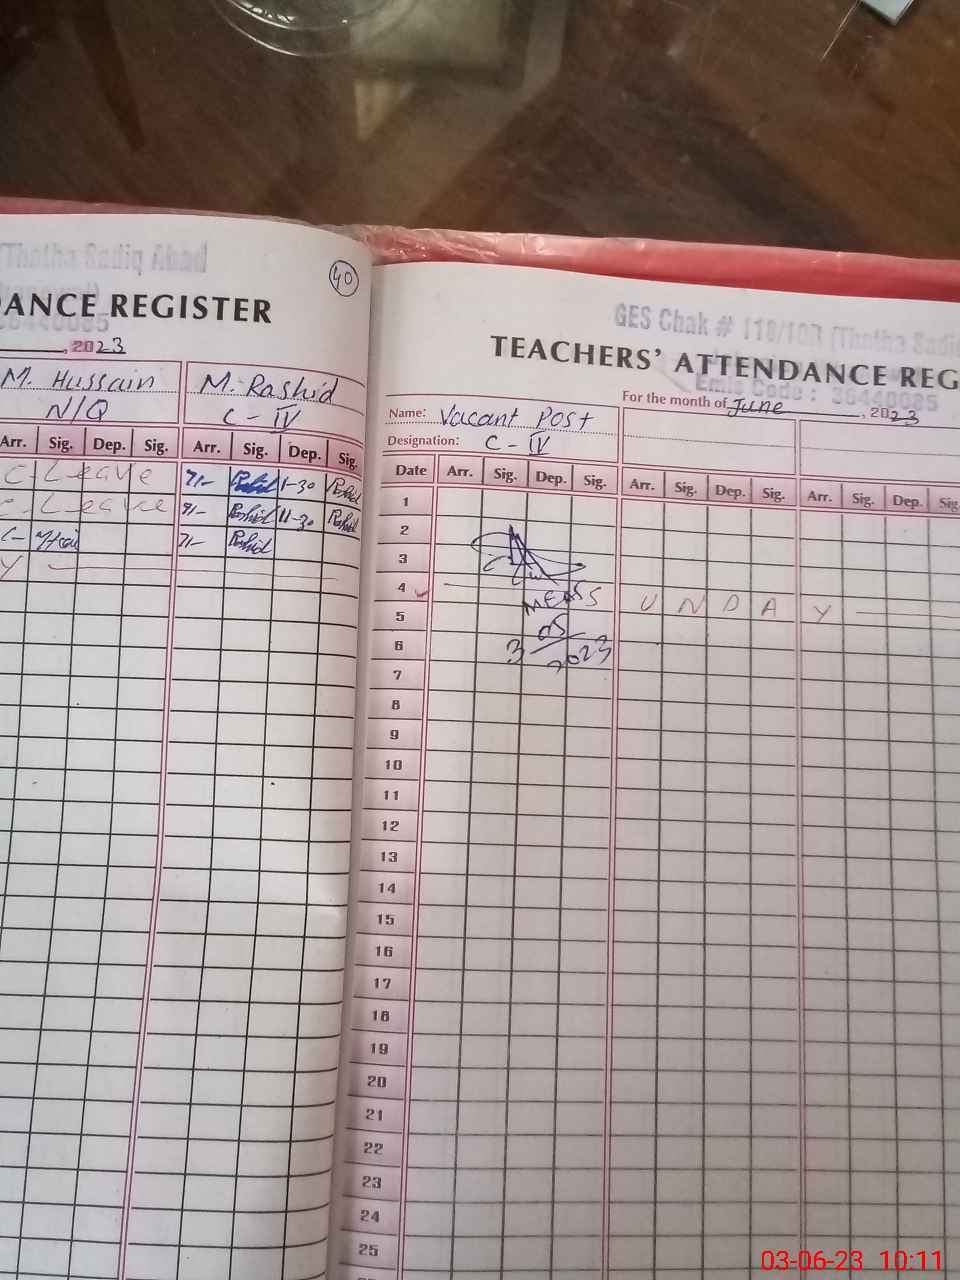 (Thotha Sadiq Abad
40
DANCE REGISTER
36440085
, 2023
M. Hussain
M. Rashid
N/Q
C - IV
Arr. Sig. Dep. Sig. Arr. Sig. Dep. Sig.
C. Leave 7/- Rashid 1-30 Rashid
C. Leave 7/- Rashid 11-30 Rashid
7/- Rashid
Y
GES Chak # 118/10R (Thotha Sadiq
TEACHERS' ATTENDANCE REG
Emis Code : 36440085
For the month of June, 2023
Name: Vacant Post
Designation: C - IV
Date Arr. Sig. Dep. Sig. Arr. Sig. Dep. Sig. Arr. Sig. Dep. Sig.
1
2
3
4 S U N D A Y
5
6
7
8
9
10
11
12
13
14
15
16
17
18
19
20
21
22
23
24
25
MEA
3/05/2023
03-06-23 10:11